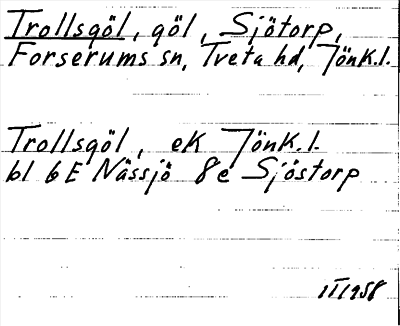 Trollsgöl, göl, Sjötorp,
Forserums sn, Tveta hd, Jönk.l.
Trollsgöl, ek Jönk.l.
bl 6E Nässjö 8e Sjöstorp